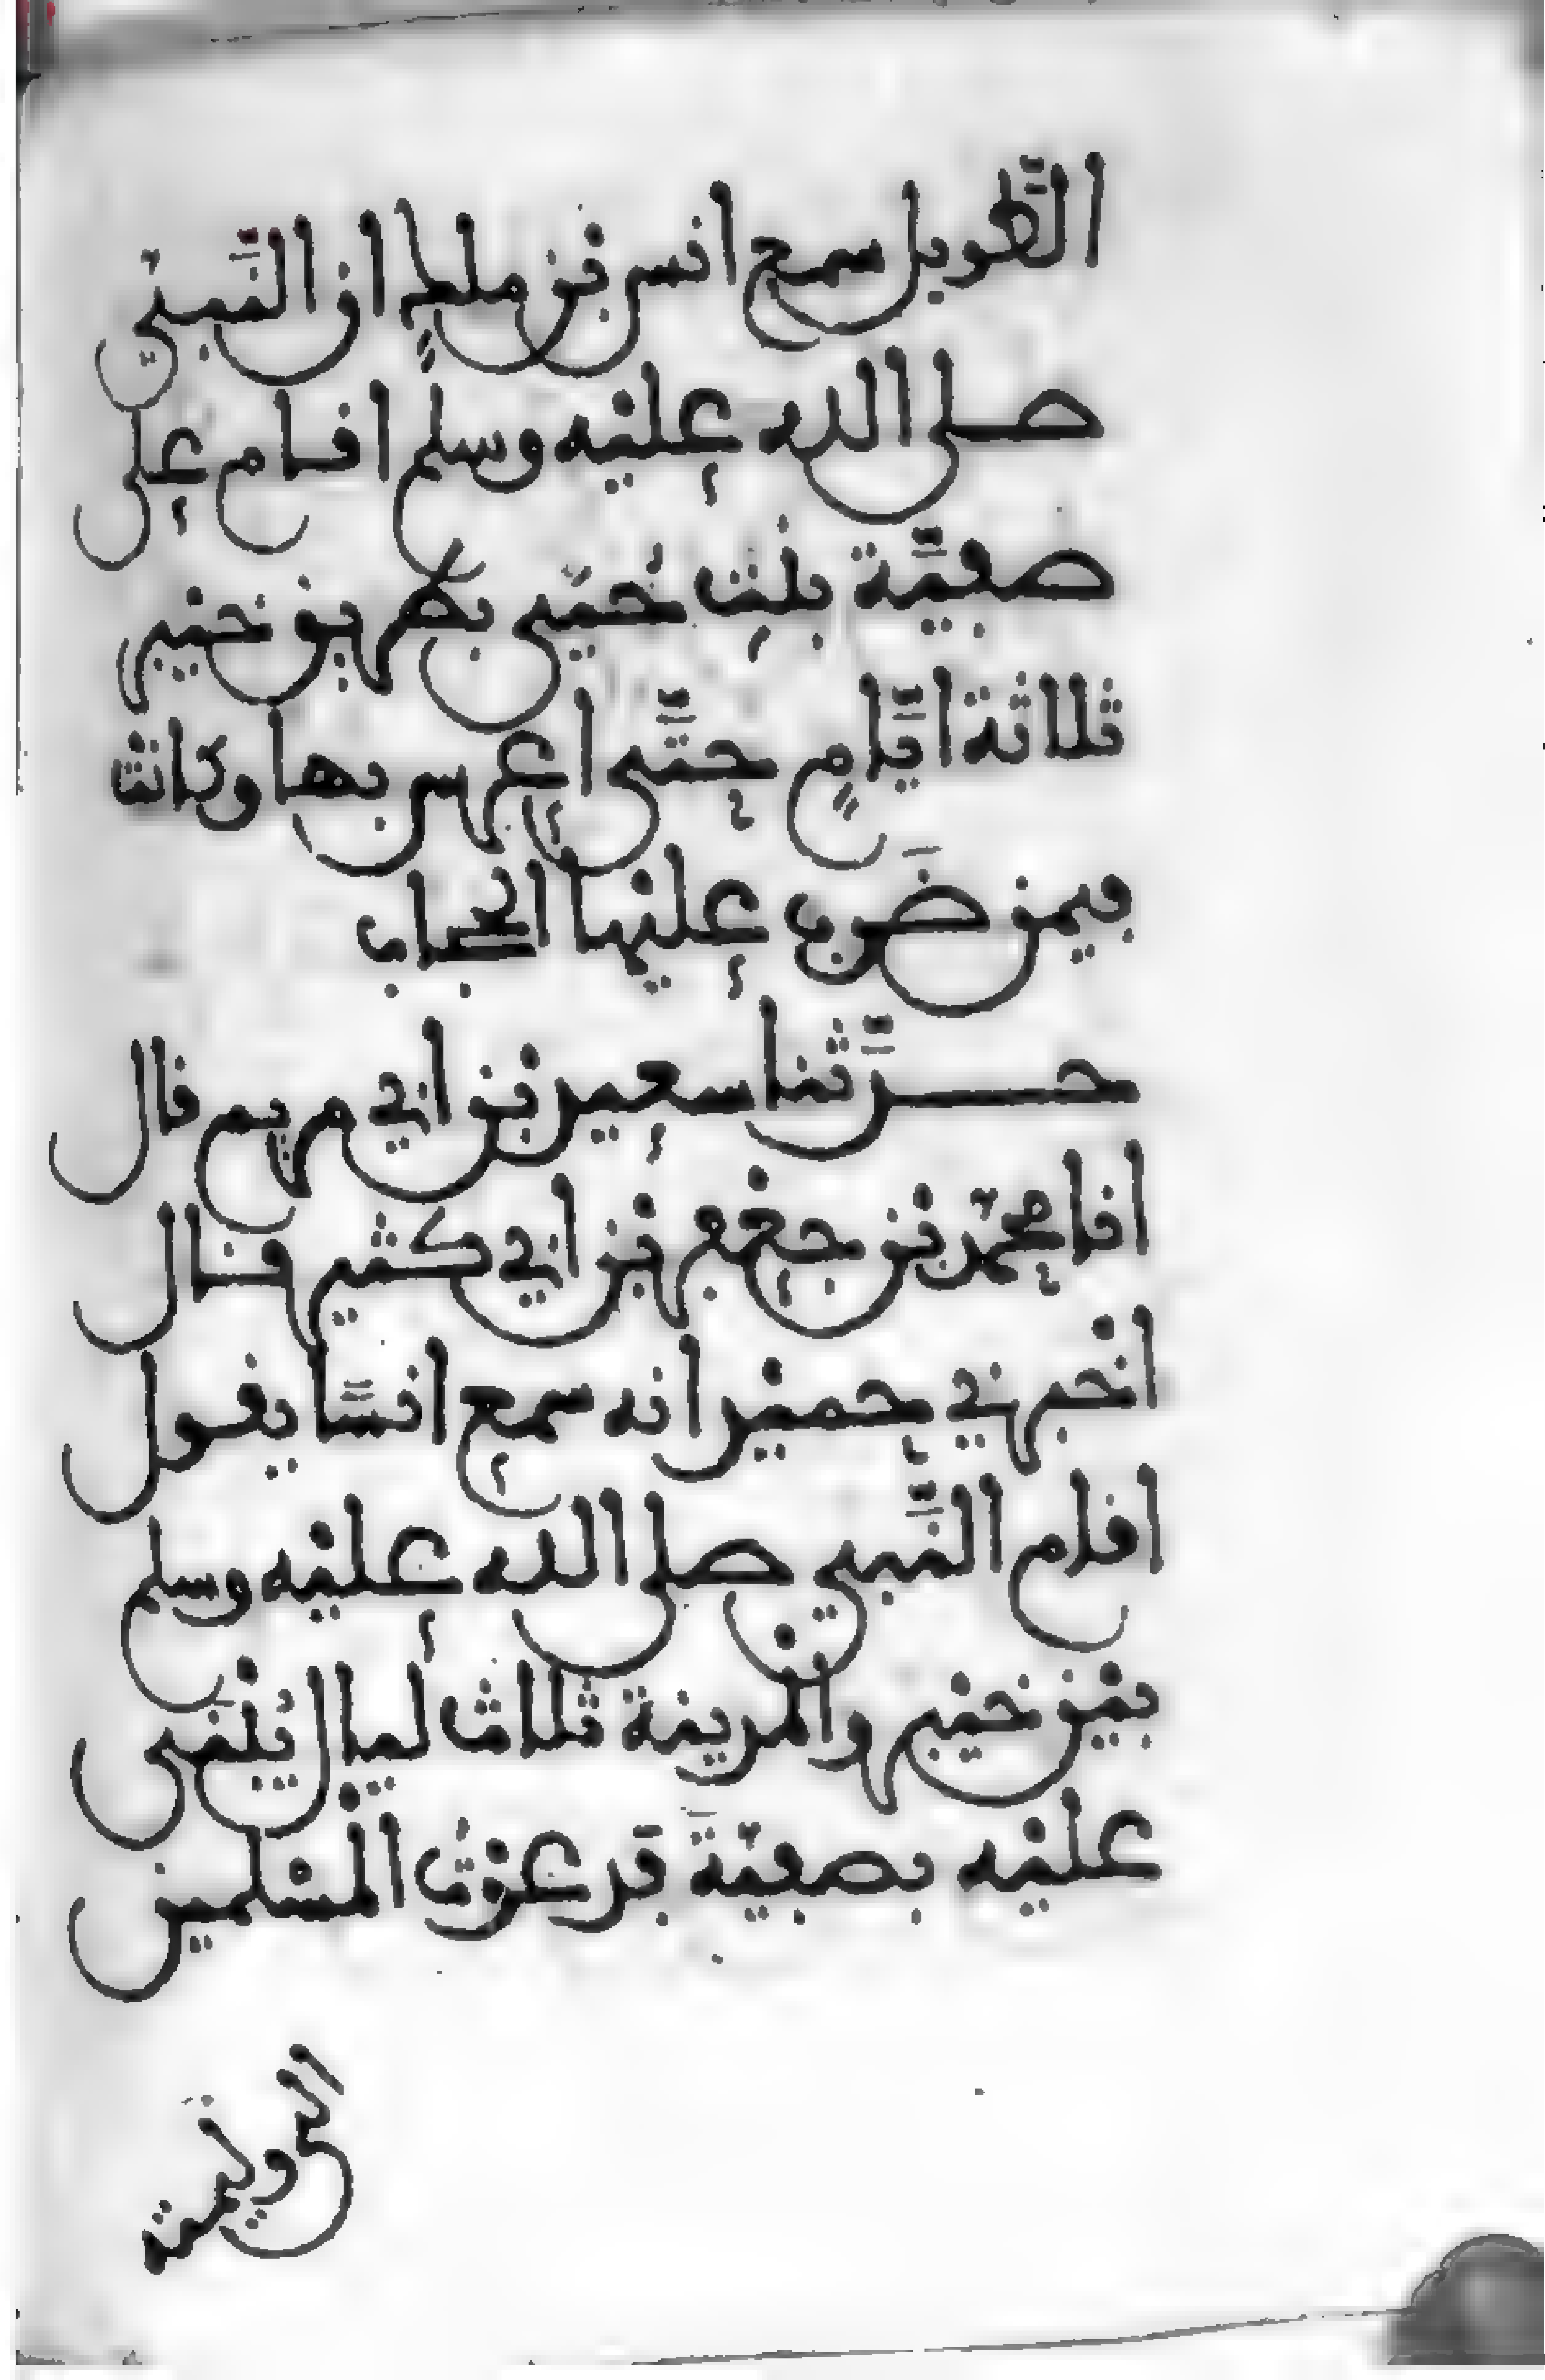 الطَّويل سمع انس بن ملكٍ ان النَّبيّ
صلى الله عليه وسلم اقام على
صفيَّة بنت حُيَيّ بطريق خيبر
ثلاثة ايَّامٍ حتَّى اعرس بها وكانت
فيمن ضَرب عليها الحجاب
حدَّثنا سعيد بن ابي مريم قال
انا محمد بن جعفر بن ابي كثير قال
اخبرني حميد انه سمع انسًا يقول
اقام النَّبي صلى الله عليه وسلم
بين خيبر والمدينة ثلاث ليال يُبْنى
عليه بصفيَّةَ فدعوتُ المسلمين
الى وليمته